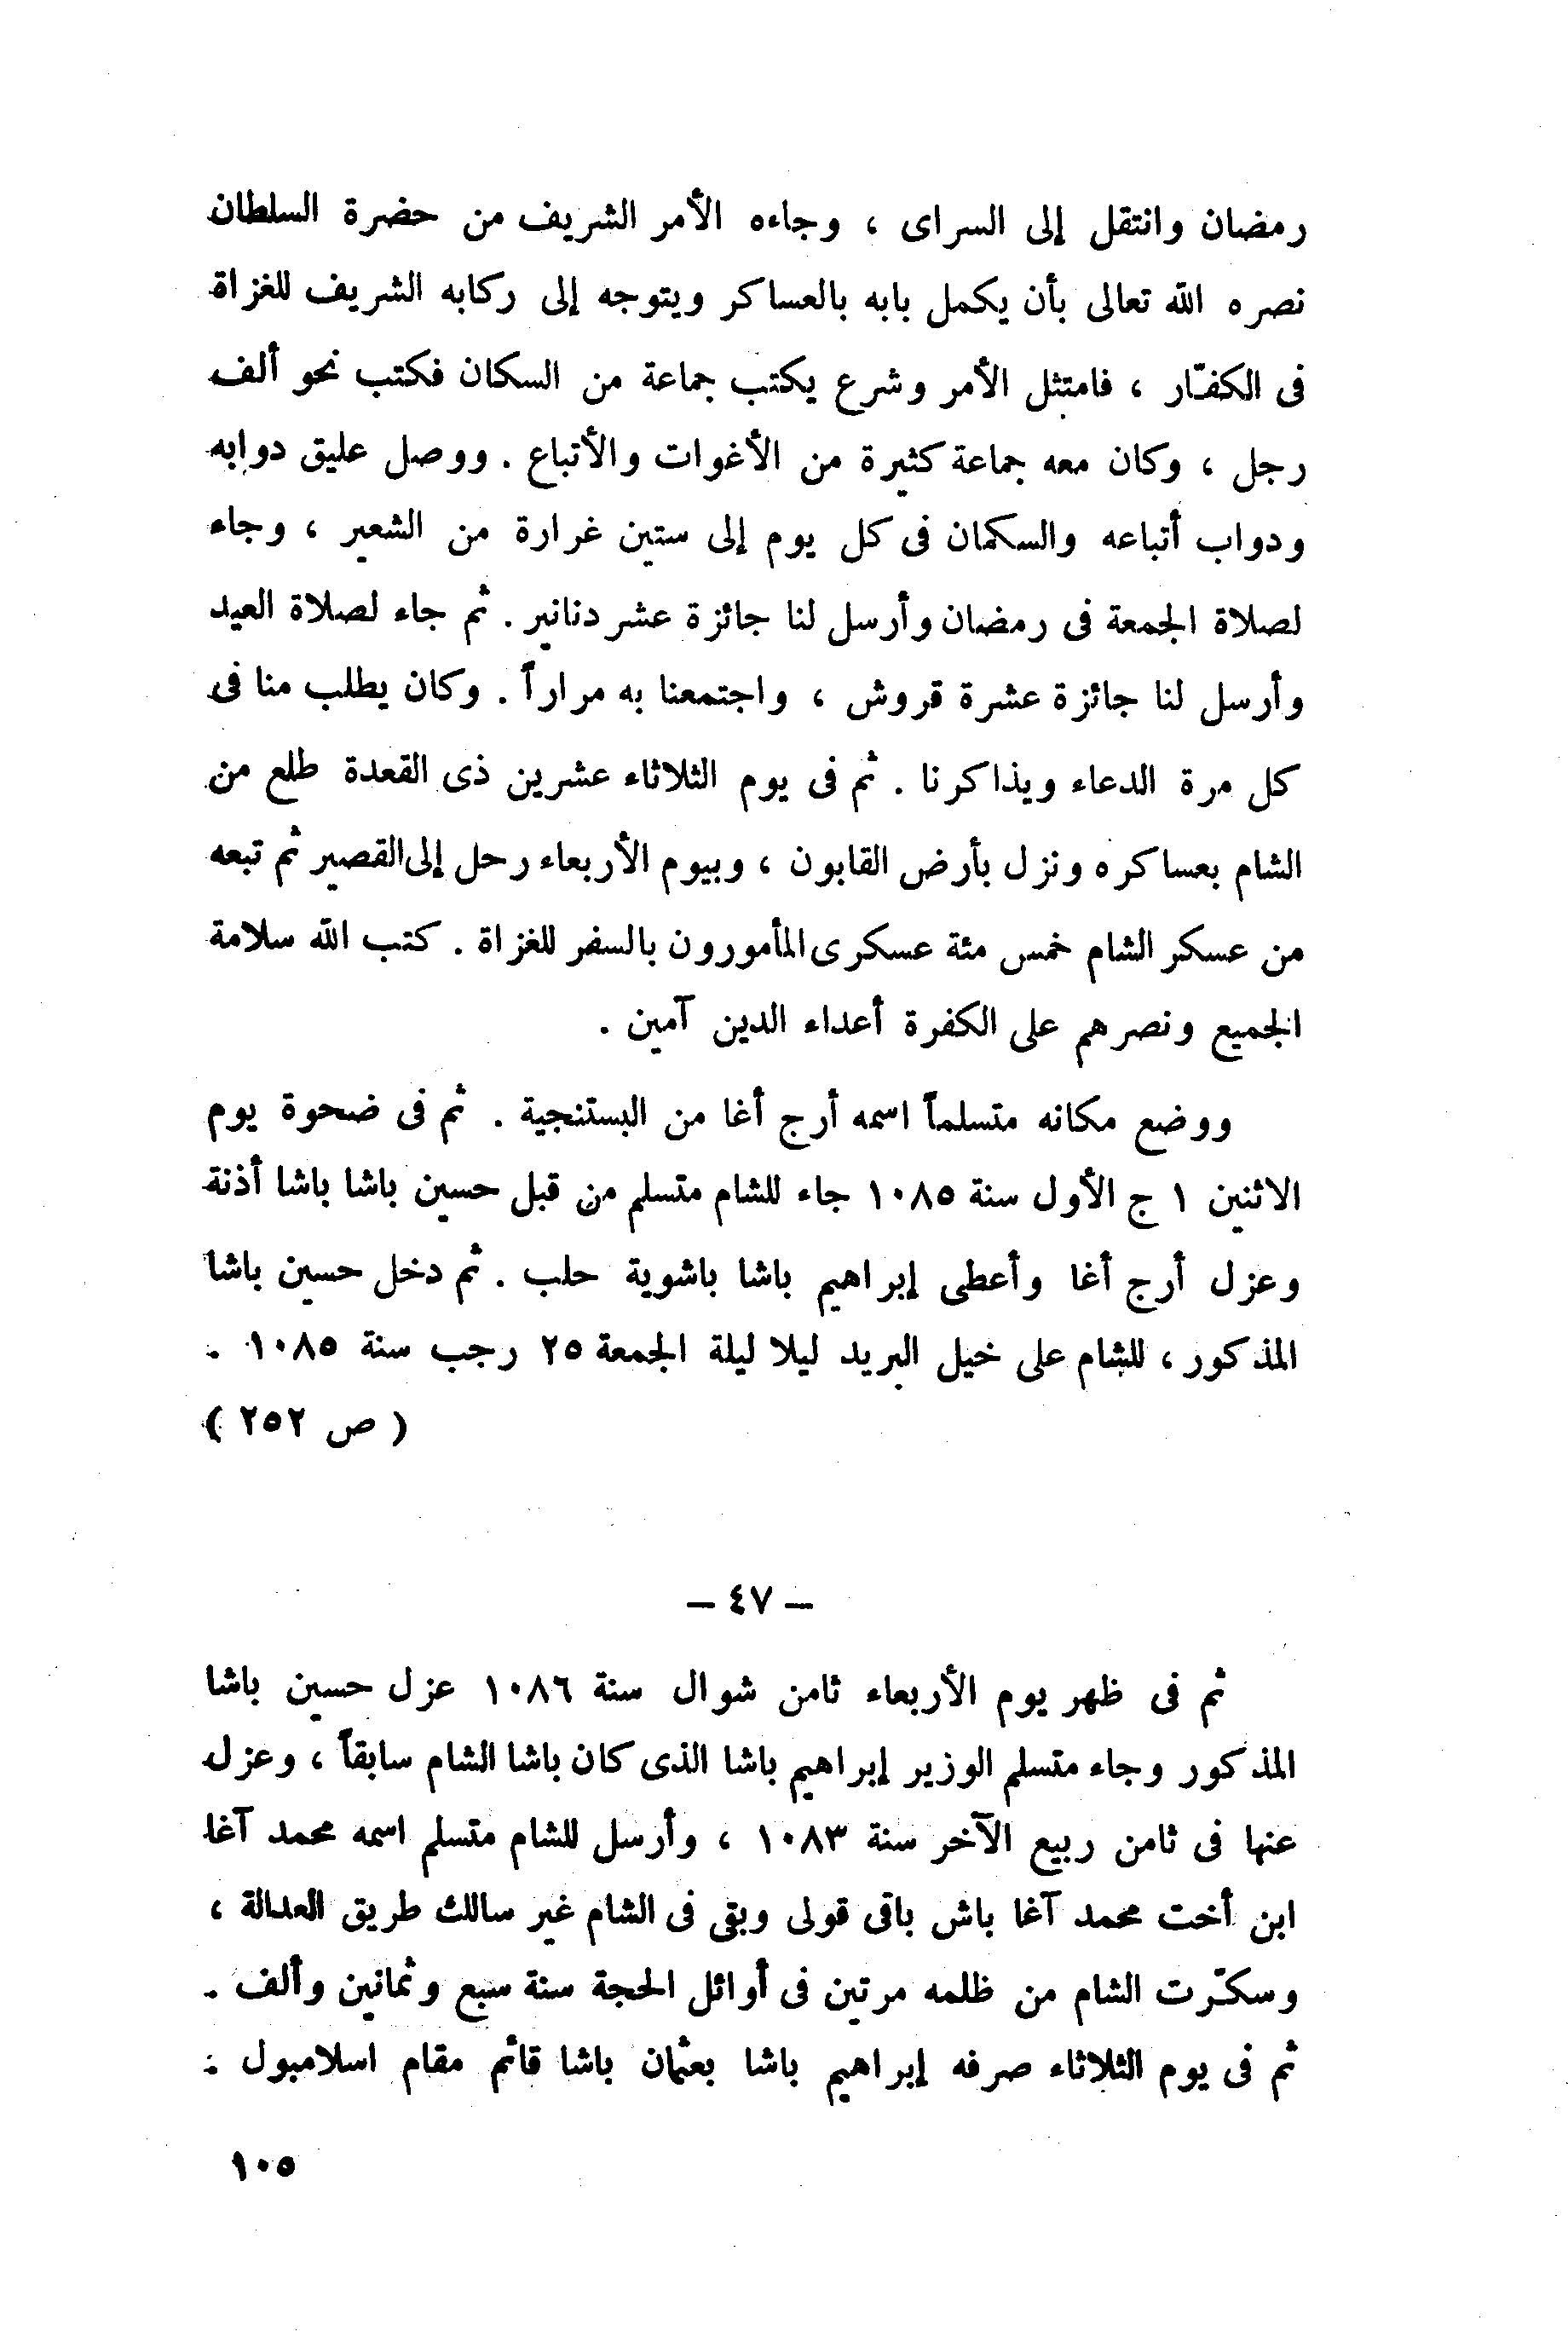 رمضان وانتقل إلى السراى ، وجاءه الأمر الشريف من حضرة السلطان
نصره الله تعالى بأن يكمل بابه بالعساكر ويتوجه إلى ركابه الشريف للغزاة
فى الكفّار ، فامتثل الأمر وشرع يكتب جماعة من السكان فكتب نحو ألف
رجل ، وكان معه جماعة كثيرة من الأغوات والأتباع . ووصل عليق دوابه
ودواب أتباعه والسكمان فى كل يوم إلى ستين غرارة من الشعير ، وجاء
لصلاة الجمعة فى رمضان وأرسل لنا جائزة عشر دنانير . ثم جاء لصلاة العيد
وأرسل لنا جائزة عشرة قروش ، واجتمعنا به مراراً . وكان يطلب منا فى
كل مرة الدعاء ويذاكرنا . ثم فى يوم الثلاثاء عشرين ذى القعدة طلع من
الشام بعساكره ونزل بأرض القابون ، وبيوم الأربعاء رحل إلى القصير ثم تبعه
من عسكر الشام خمس مئة عسكرى المأمورون بالسفر للغزاة . كتب الله سلامة
الجميع ونصرهم على الكفرة أعداء الدين آمين .
ووضع مكانه متسلماً اسمه أرج أغا من البستنجية . ثم فى ضحوة يوم
الاثنين ١ ج الأول سنة ١٠٨٥ جاء للشام متسلم من قبل حسين باشا باشا أذنة
وعزل أرج أغا وأعطى إبراهيم باشا باشوية حلب . ثم دخل حسين باشا
المذكور ، للشام على خيل البريد ليلا ليلة الجمعة ٢٥ رجب سنة ١٠٨٥ .
( ص ٢٥٢ )
– ٤٧ –
ثم فى ظهر يوم الأربعاء ثامن شوال سنة ١٠٨٦ عزل حسين باشا
المذكور وجاء متسلم الوزير إبراهيم باشا الذى كان باشا الشام سابقاً ، وعزل
عنها فى ثامن ربيع الآخر سنة ١٠٨٣ ، وأرسل للشام متسلم اسمه محمد آغا
ابن أخت محمد آغا باش باقى قولى وبقى فى الشام غير سالك طريق العدالة ،
وسكّرت الشام من ظلمه مرتين فى أوائل الحجة سنة سبع وثمانين وألف .
ثم فى يوم الثلاثاء صرفه إبراهيم باشا بعثمان باشا قائم مقام اسلامبول :
١٠٥